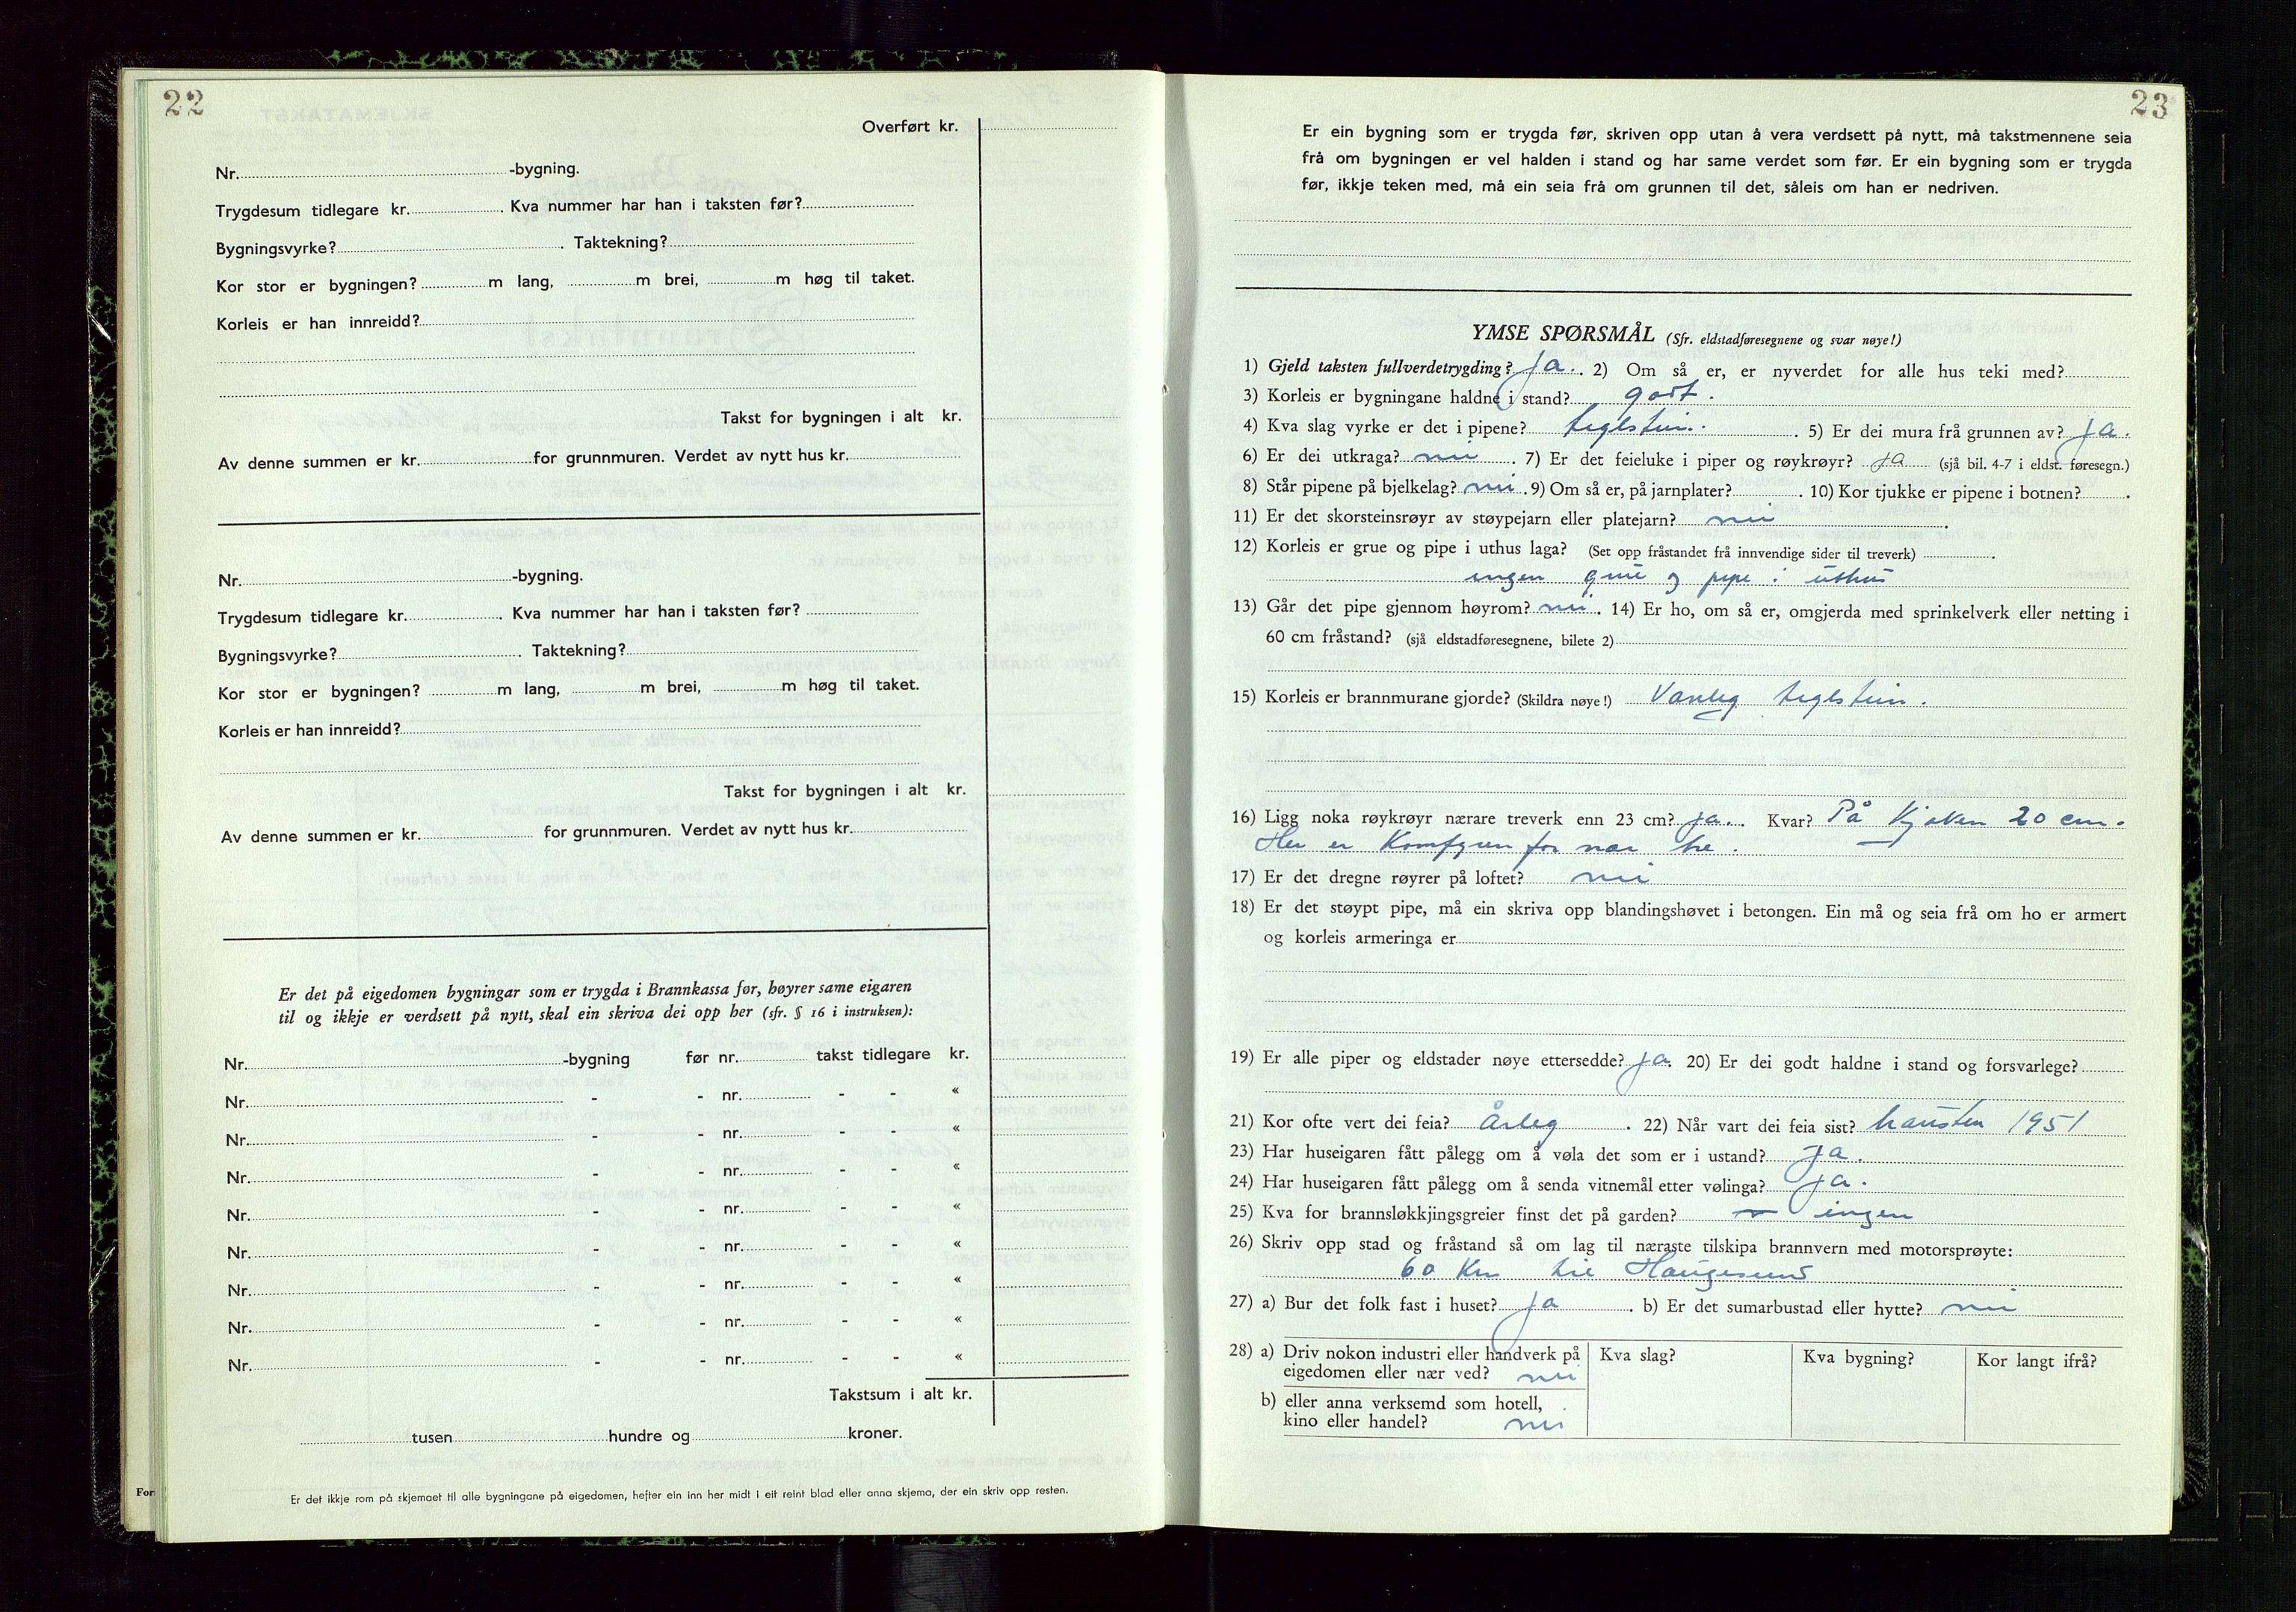 22
Overført kr.
Nr. -bygning.
Trygdesum tidlegare kr. . Kva nummer har han i taksten før?
Bygningsvyrke? . Taktekning?
Kor stor er bygningen? m lang, m brei, m høg til taket.
Korleis er han innreidd?
Takst for bygningen i alt kr.
Av denne summen er kr. for grunnmuren. Verdet av nytt hus kr.
Nr. -bygning.
Trygdesum tidlegare kr. . Kva nummer har han i taksten før?
Bygningsvyrke? . Taktekning?
Kor stor er bygningen? m lang, m brei, m høg til taket.
Korleis er han innreidd?
Takst for bygningen i alt kr.
Av denne summen er kr. for grunnmuren. Verdet av nytt hus kr.
Er det på eigedomen bygningar som er trygda i Brannkassa før, høyrer same eigaren
til og ikkje er verdsett på nytt, skal ein skriva dei opp her (sfr. § 16 i instruksen):
Nr. -bygning før nr. takst tidlegare kr.
Nr. - - nr. - - «
Nr. - - nr. - - «
Nr. - - nr. - - «
Nr. - - nr. - - «
Nr. - - nr. - - «
Nr. - - nr. - - «
Nr. - - nr. - - «
Nr. - - nr. - - «
Takstsum i alt kr.
tusen hundre og kroner.
For
Er det ikkje rom på skjemaet til alle bygningane på eigedomen, hefter ein inn her midt i eit reint blad eller anna skjema, der ein skriv opp resten.
23
Er ein bygning som er trygda før, skriven opp utan å vera verdsett på nytt, må takstmennene seia
frå om bygningen er vel halden i stand og har same verdet som før. Er ein bygning som er trygda
før, ikkje teken med, må ein seia frå om grunnen til det, såleis om han er nedriven.
YMSE SPØRSMÅL (Sfr. eldstadføresegnene og svar nøye!)
1) Gjeld taksten fullverdetrygding? ja. . 2) Om så er, er nyverdet for alle hus teki med?
3) Korleis er bygningane haldne i stand? godt.
4) Kva slag vyrke er det i pipene? teglstein. . 5) Er dei mura frå grunnen av? ja.
6) Er dei utkraga? nei . 7) Er det feieluke i piper og røykrøyr? ja (sjå bil. 4-7 i eldst. føresegn.)
8) Står pipene på bjelkelag? nei . 9) Om så er, på jarnplater? . 10) Kor tjukke er pipene i botnen? .
11) Er det skorsteinsrøyr av støypejarn eller platejarn? nei .
12) Korleis er grue og pipe i uthus laga? (Set opp fråstandet frå innvendige sider til treverk) .
ingen grue og pipe i uthus
13) Går det pipe gjennom høyrom? nei . 14) Er ho, om så er, omgjerda med sprinkelverk eller netting i
60 cm fråstand? (sjå eldstadføresegnene, bilete 2)
15) Korleis er brannmurane gjorde? (Skildra nøye!) Vanleg teglstein.
16) Ligg noka røykrøyr nærare treverk enn 23 cm? ja. . Kvar? På Kjøken 20 cm.
Her er Komfyren for nær tre.
17) Er det dregne røyrer på loftet? nei
18) Er det støypt pipe, må ein skriva opp blandingshøvet i betongen. Ein må og seia frå om ho er armert
og korleis armeringa er
19) Er alle piper og eldstader nøye ettersedde? ja. 20) Er dei godt haldne i stand og forsvarlege?
21) Kor ofte vert dei feia? Årleg . 22) Når vart dei feia sist? hausten 1951
23) Har huseigaren fått pålegg om å vøla det som er i ustand? ja.
24) Har huseigaren fått pålegg om å senda vitnemål etter vølinga? ja.
25) Kva for brannsløkkjingsgreier finst det på garden? ingen
26) Skriv opp stad og fråstand så om lag til næraste tilskipa brannvern med motorsprøyte:
60 Km til Haugesund
27) a) Bur det folk fast i huset? ja . b) Er det sumarbustad eller hytte? nei
28) a) Driv nokon industri eller handverk på Kva slag? Kva bygning? Kor langt ifrå?
eigedomen eller nær ved? nei
b) eller anna verksemd som hotell,
kino eller handel? nei